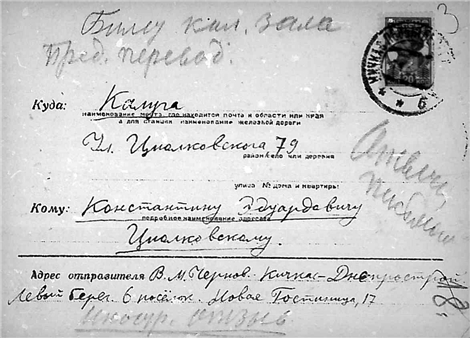 Куда: Калуга
наименование места, где находится почта и области или края
а для станции наименование железной дороги
Ул. Циолковского 79
район село или деревня
улица № дома и квартиры
Кому: Константину Эдуардовичу
подробное наименование адресата
Циолковскому.
Адрес отправителя В. М. Чернов. Кичкас-Днепрострой
Левый берег. 6 посёлок. Новая Гостиница, 17
отзыв